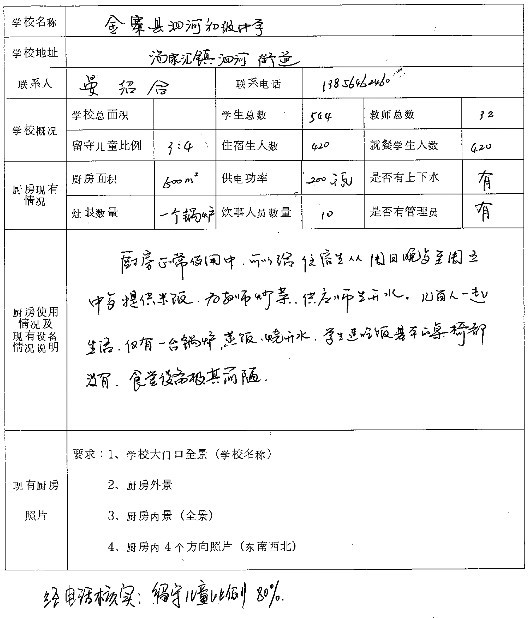 学校名称 金寨县泗河初级中学
学校地址 汤家汇镇泗河街道
联系人 晏绍合 联系电话 13856462460
学校概况 学校总面积 学生总数 564 教师总数 32
留守儿童比例 3:4 住宿生人数 420 就餐学生人数 420
厨房现有情况 厨房面积 600m² 供电功率 200 是否有上下水 有
灶具数量 一个锅炉 炊事人员数量 10 是否有管理员 有
厨房使用情况及现有设备情况说明
厨房正常使用中,可以给住宿生从周日晚与至周五
中与提供米饭,为教师炒菜,供应师生开水。几百人一起
生活,仅有一台锅炉,蒸饭、烧开水,学生连吃饭基本的桌椅都
没有,食堂设备极其简陋。
现有厨房照片
要求:1、学校大门口全景(学校名称)
2、厨房外景
3、厨房内景(全景)
4、厨房内4个方向照片(东南西北)
经电话核实:留守儿童比例80%.